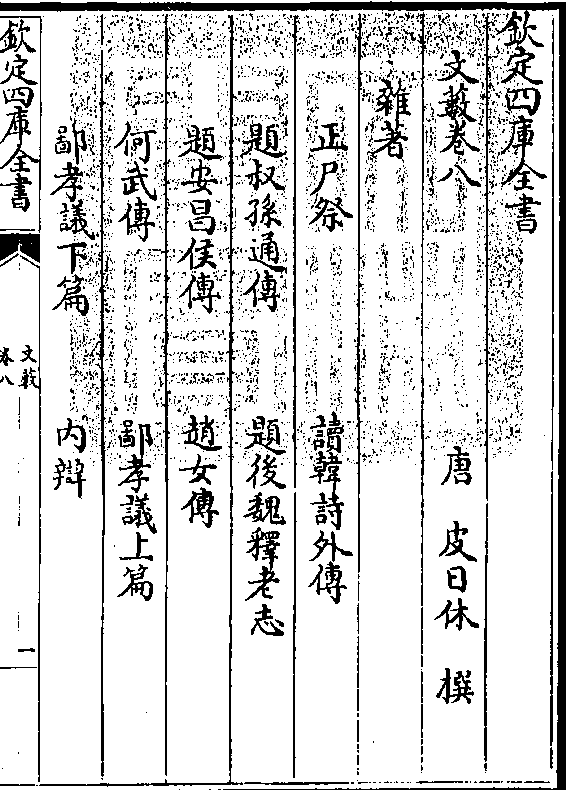 欽定四庫全書
文藪卷八　唐　皮日休　撰
雜著
正尸祭　讀韓詩外傳
題叔孫通傳　題後魏釋老志
題安昌侯傳　趙女傳
何武傳　鄙孝議上篇
鄙孝議下篇　內辯
欽定四庫全書
文藪
卷八
一